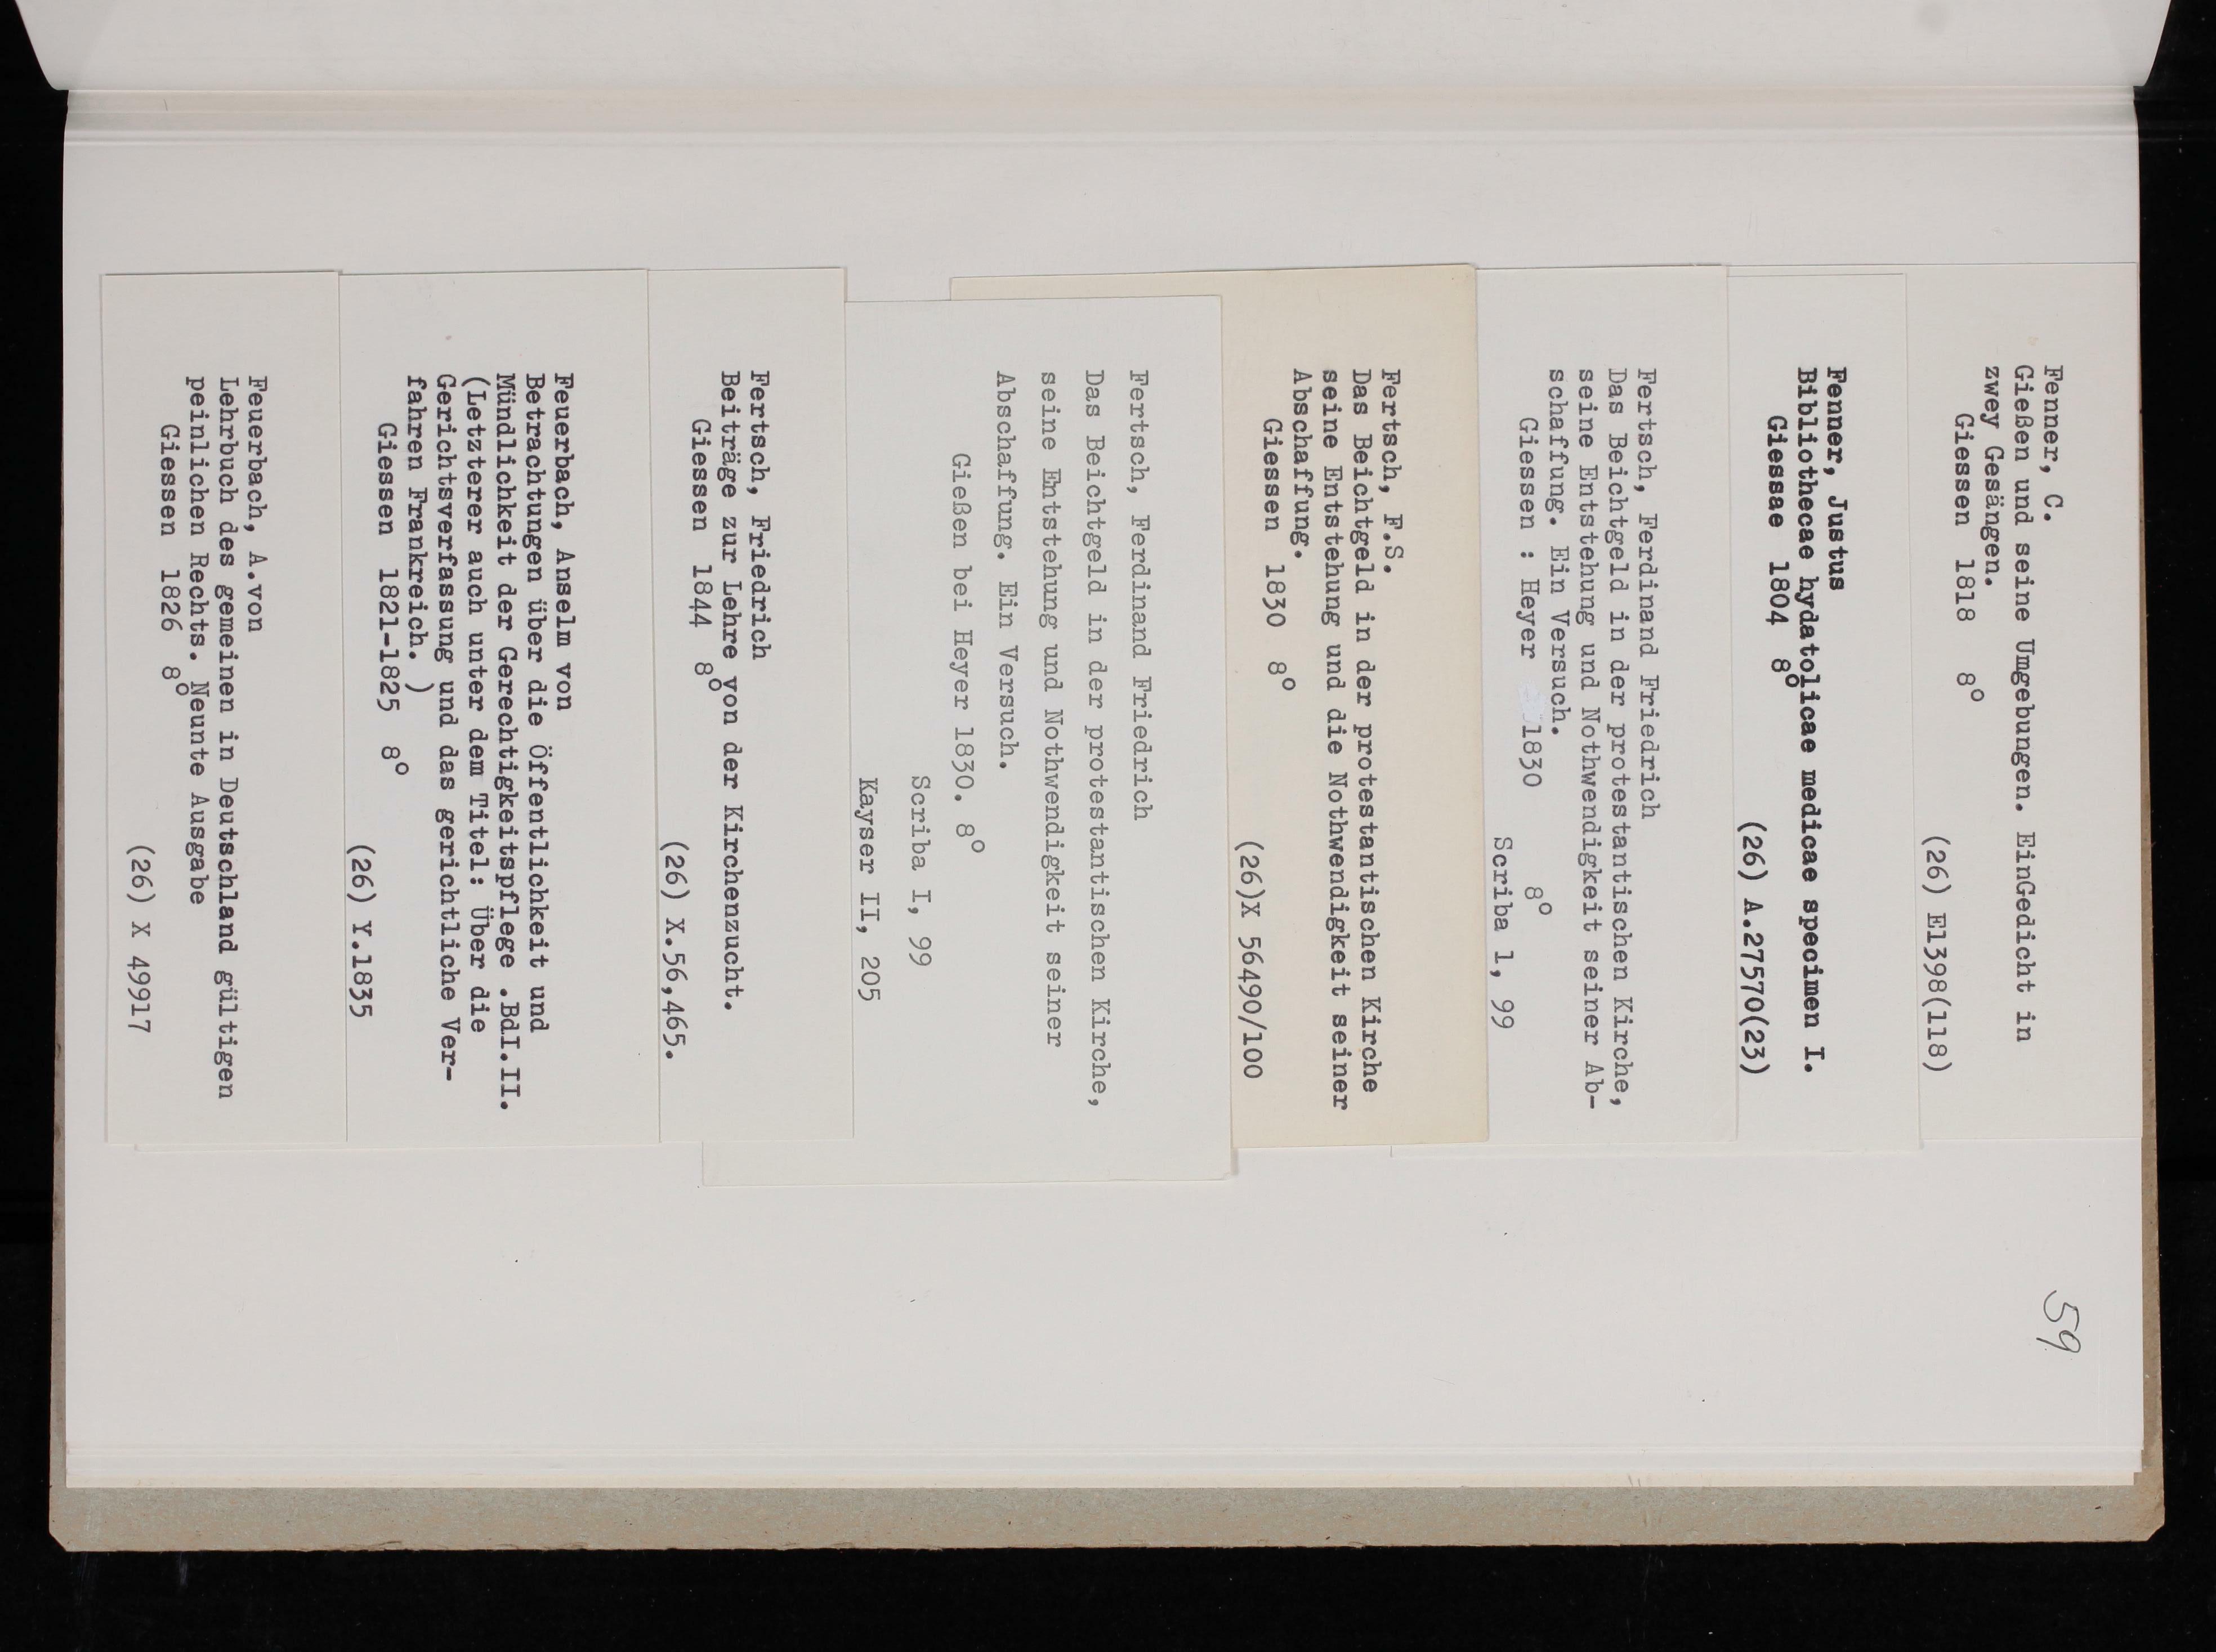 59
Fenner, C.
Gießen und seine Umgebungen. EinGedicht in
zwey Gesängen.
Giessen 1818 8°
(26) E1398(118)
Fenner, Justus
Bibliothecae hydatolicae medicae specimen I.
Giessae 1804 8°
(26) A.27570(23)
Fertsch, Ferdinand Friedrich
Das Beichtgeld in der protestantischen Kirche,
seine Entstehung und Nothwendigkeit seiner Ab-
schaffung. Ein Versuch.
Giessen : Heyer 1830 8°
Scriba 1, 99
Fertsch, F.S.
Das Beichtgeld in der protestantischen Kirche
seine Entstehung und die Nothwendigkeit seiner
Abschaffung.
Giessen 1830 8°
(26)X 56490/100
Fertsch, Ferdinand Friedrich
Das Beichtgeld in der protestantischen Kirche,
seine Entstehung und Nothwendigkeit seiner
Abschaffung. Ein Versuch.
Gießen bei Heyer 1830. 8°
Scriba I, 99
Kayser II, 205
Fertsch, Friedrich
Beiträge zur Lehre von der Kirchenzucht.
Giessen 1844 8°
(26) X.56,465.
Feuerbach, Anselm von
Betrachtungen über die Öffentlichkeit und
Mündlichkeit der Gerechtigkeitspflege .BdI.II.
(Letzterer auch unter dem Titel: Über die
Gerichtsverfassung und das gerichtliche Ver-
fahren Frankreich. )
Giessen 1821-1825 8°
(26) Y.1835
Feuerbach, A.von
Lehrbuch des gemeinen in Deutschland gültigen
peinlichen Rechts. Neunte Ausgabe
Giessen 1826 8°
(26) X 49917